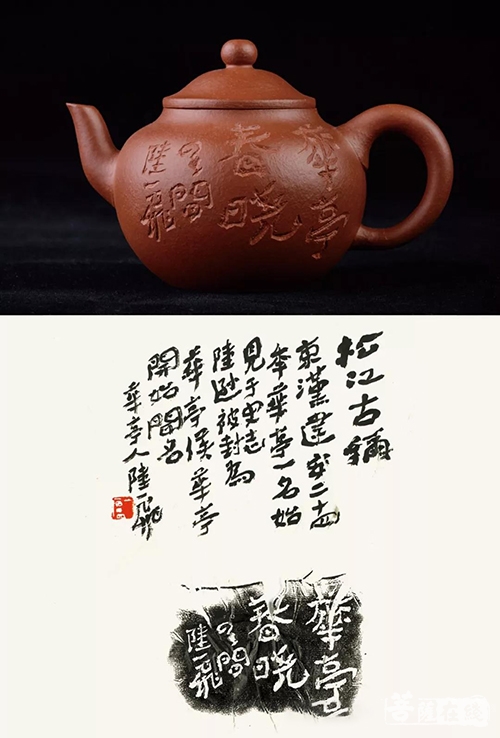 華亭
春晓
陸一飛
松江古
東漢建安二十四
年華亭一名始
見于史志
陸遜被封為
華亭侯華亭
開始聞名
華亭人陸一飛
華亭
春晓
陸一飛
在线